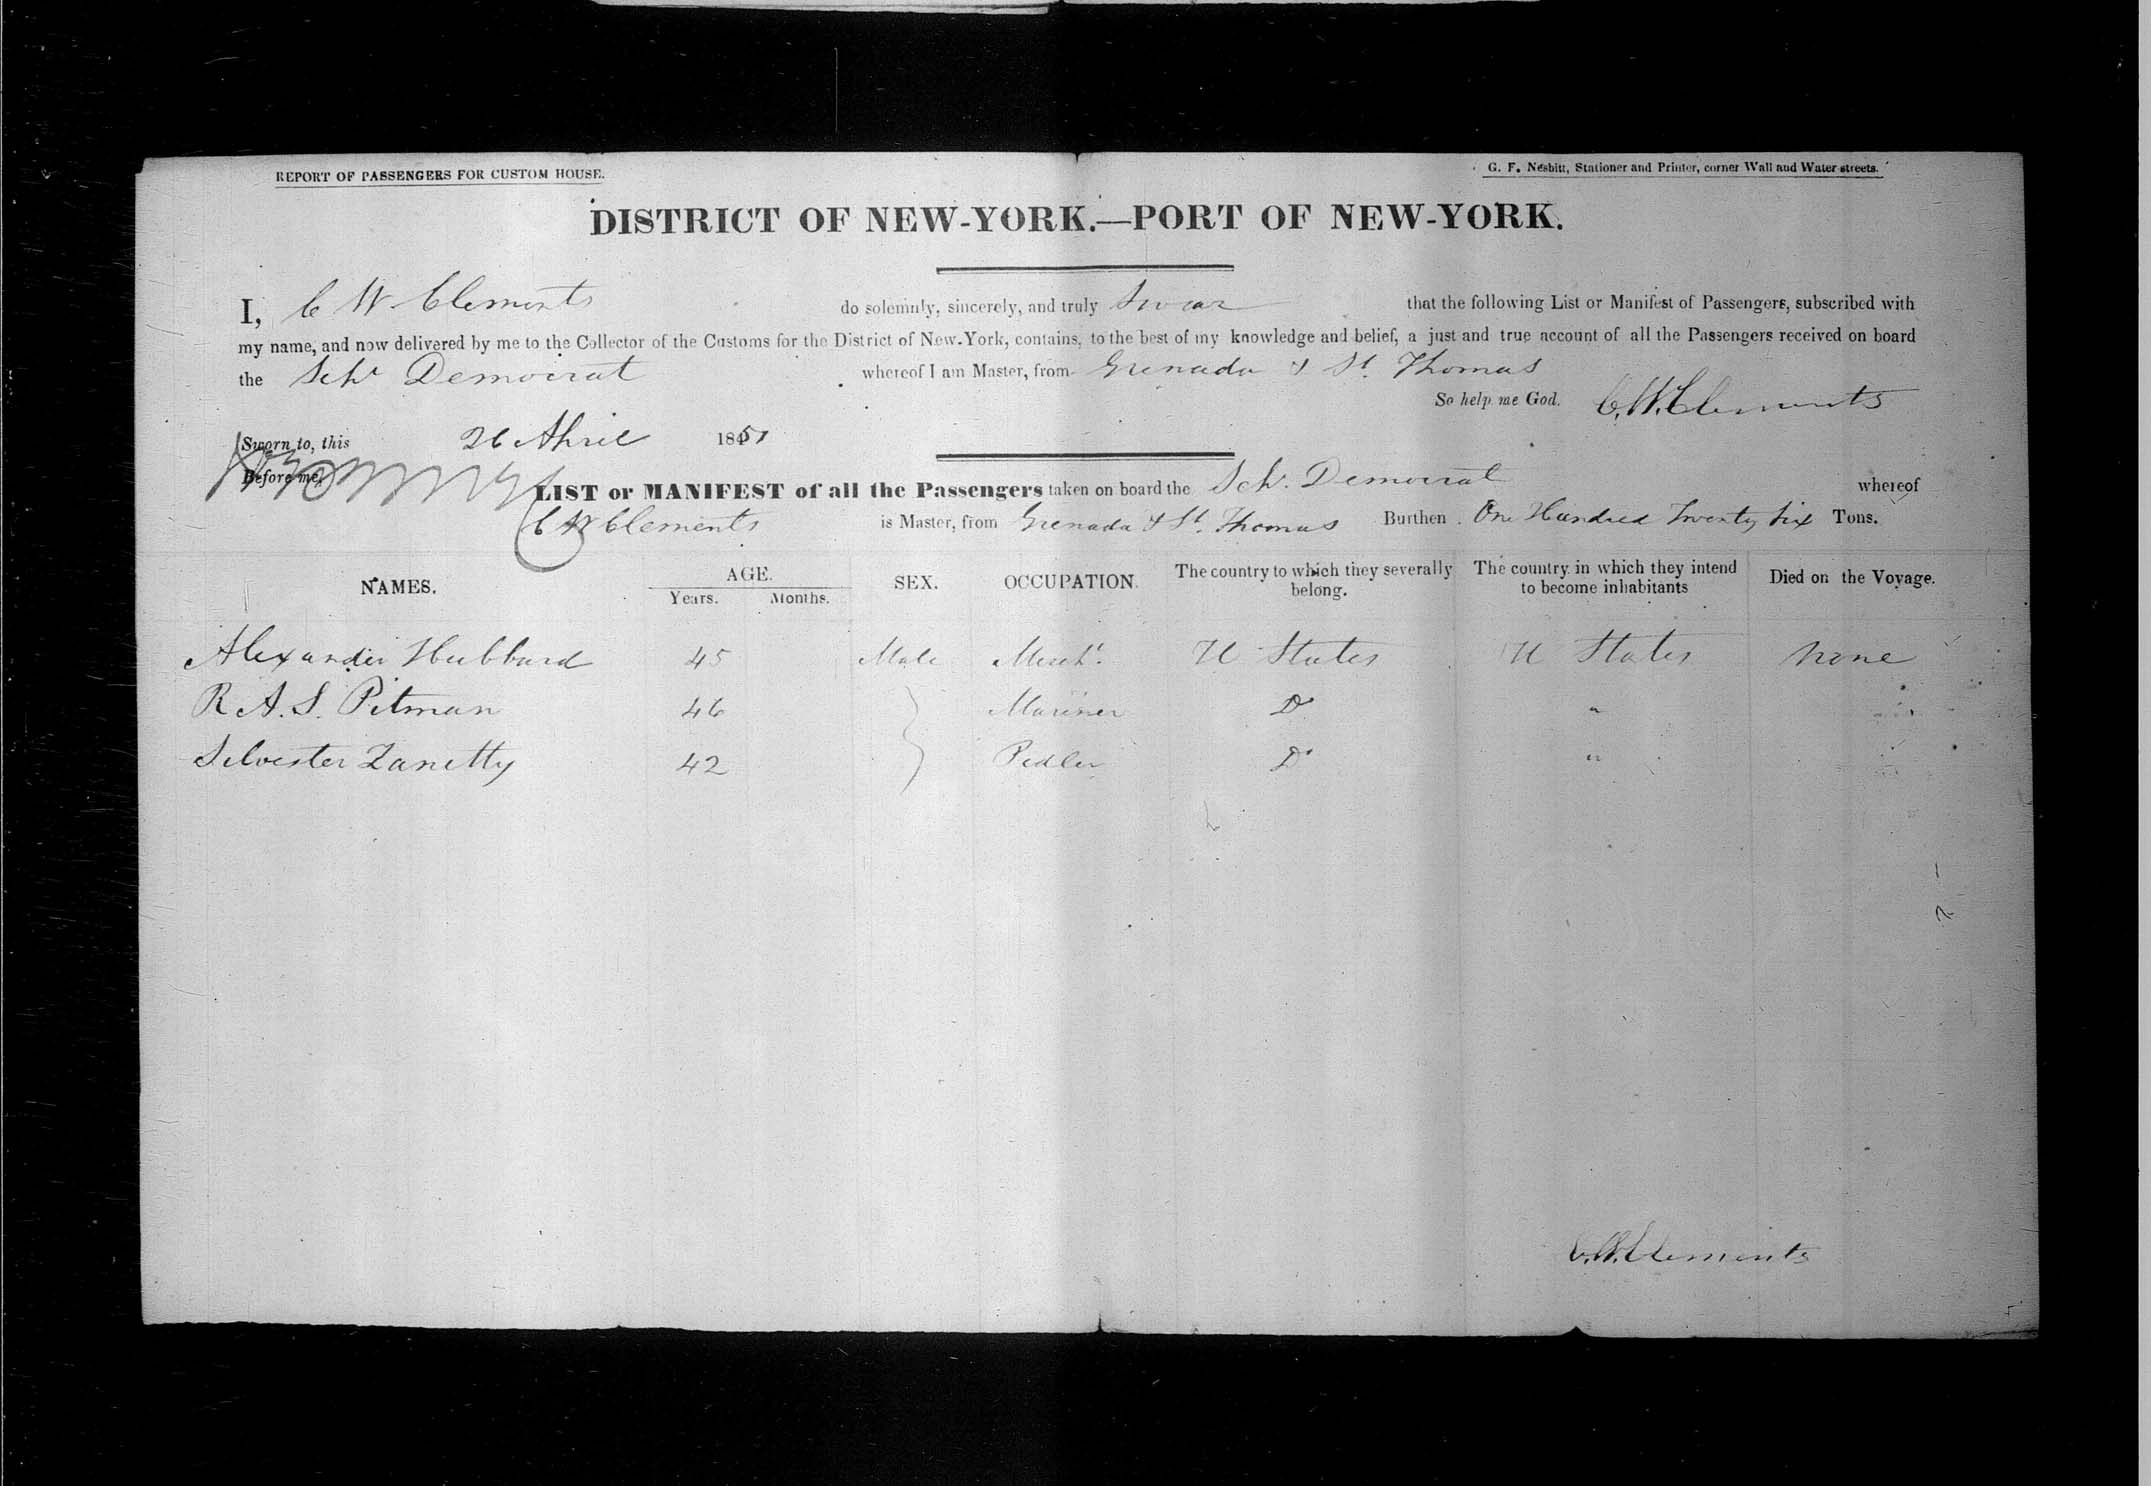 REPORT OF PASSENGERS FOR CUSTOM HOUSE.
G. F. Nesbitt, Stationer and Printer, corner Wall and Water streets.
DISTRICT OF NEW-YORK.—PORT OF NEW-YORK.
I, C W Clements do solemnly, sincerely, and truly Swear that the following List or Manifest of Passengers, subscribed with
my name, and now delivered by me to the Collector of the Customs for the District of New-York, contains, to the best of my knowledge and belief, a just and true account of all the Passengers received on board
the Schr Democrat whereof I am Master, from Grenada & St. Thomas
So help me God. C. W. Clements
Sworn to, this 26 April 1851
Before me,
LIST or MANIFEST of all the Passengers taken on board the Schr. Democrat whereof
C W Clements is Master, from Grenada & St. Thomas Burthen One Hundred Twenty Six Tons.
NAMES. AGE. SEX. OCCUPATION. The country to which they severally belong. The country in which they intend to become inhabitants Died on the Voyage.
Years. Months.
Alexander Hubbard 45 Male Mercht. U States U States None
R. A. S. Pitman 46 Mariner Do "
Silvester Zanetty 42 Pedler Do "
C. W. Clements